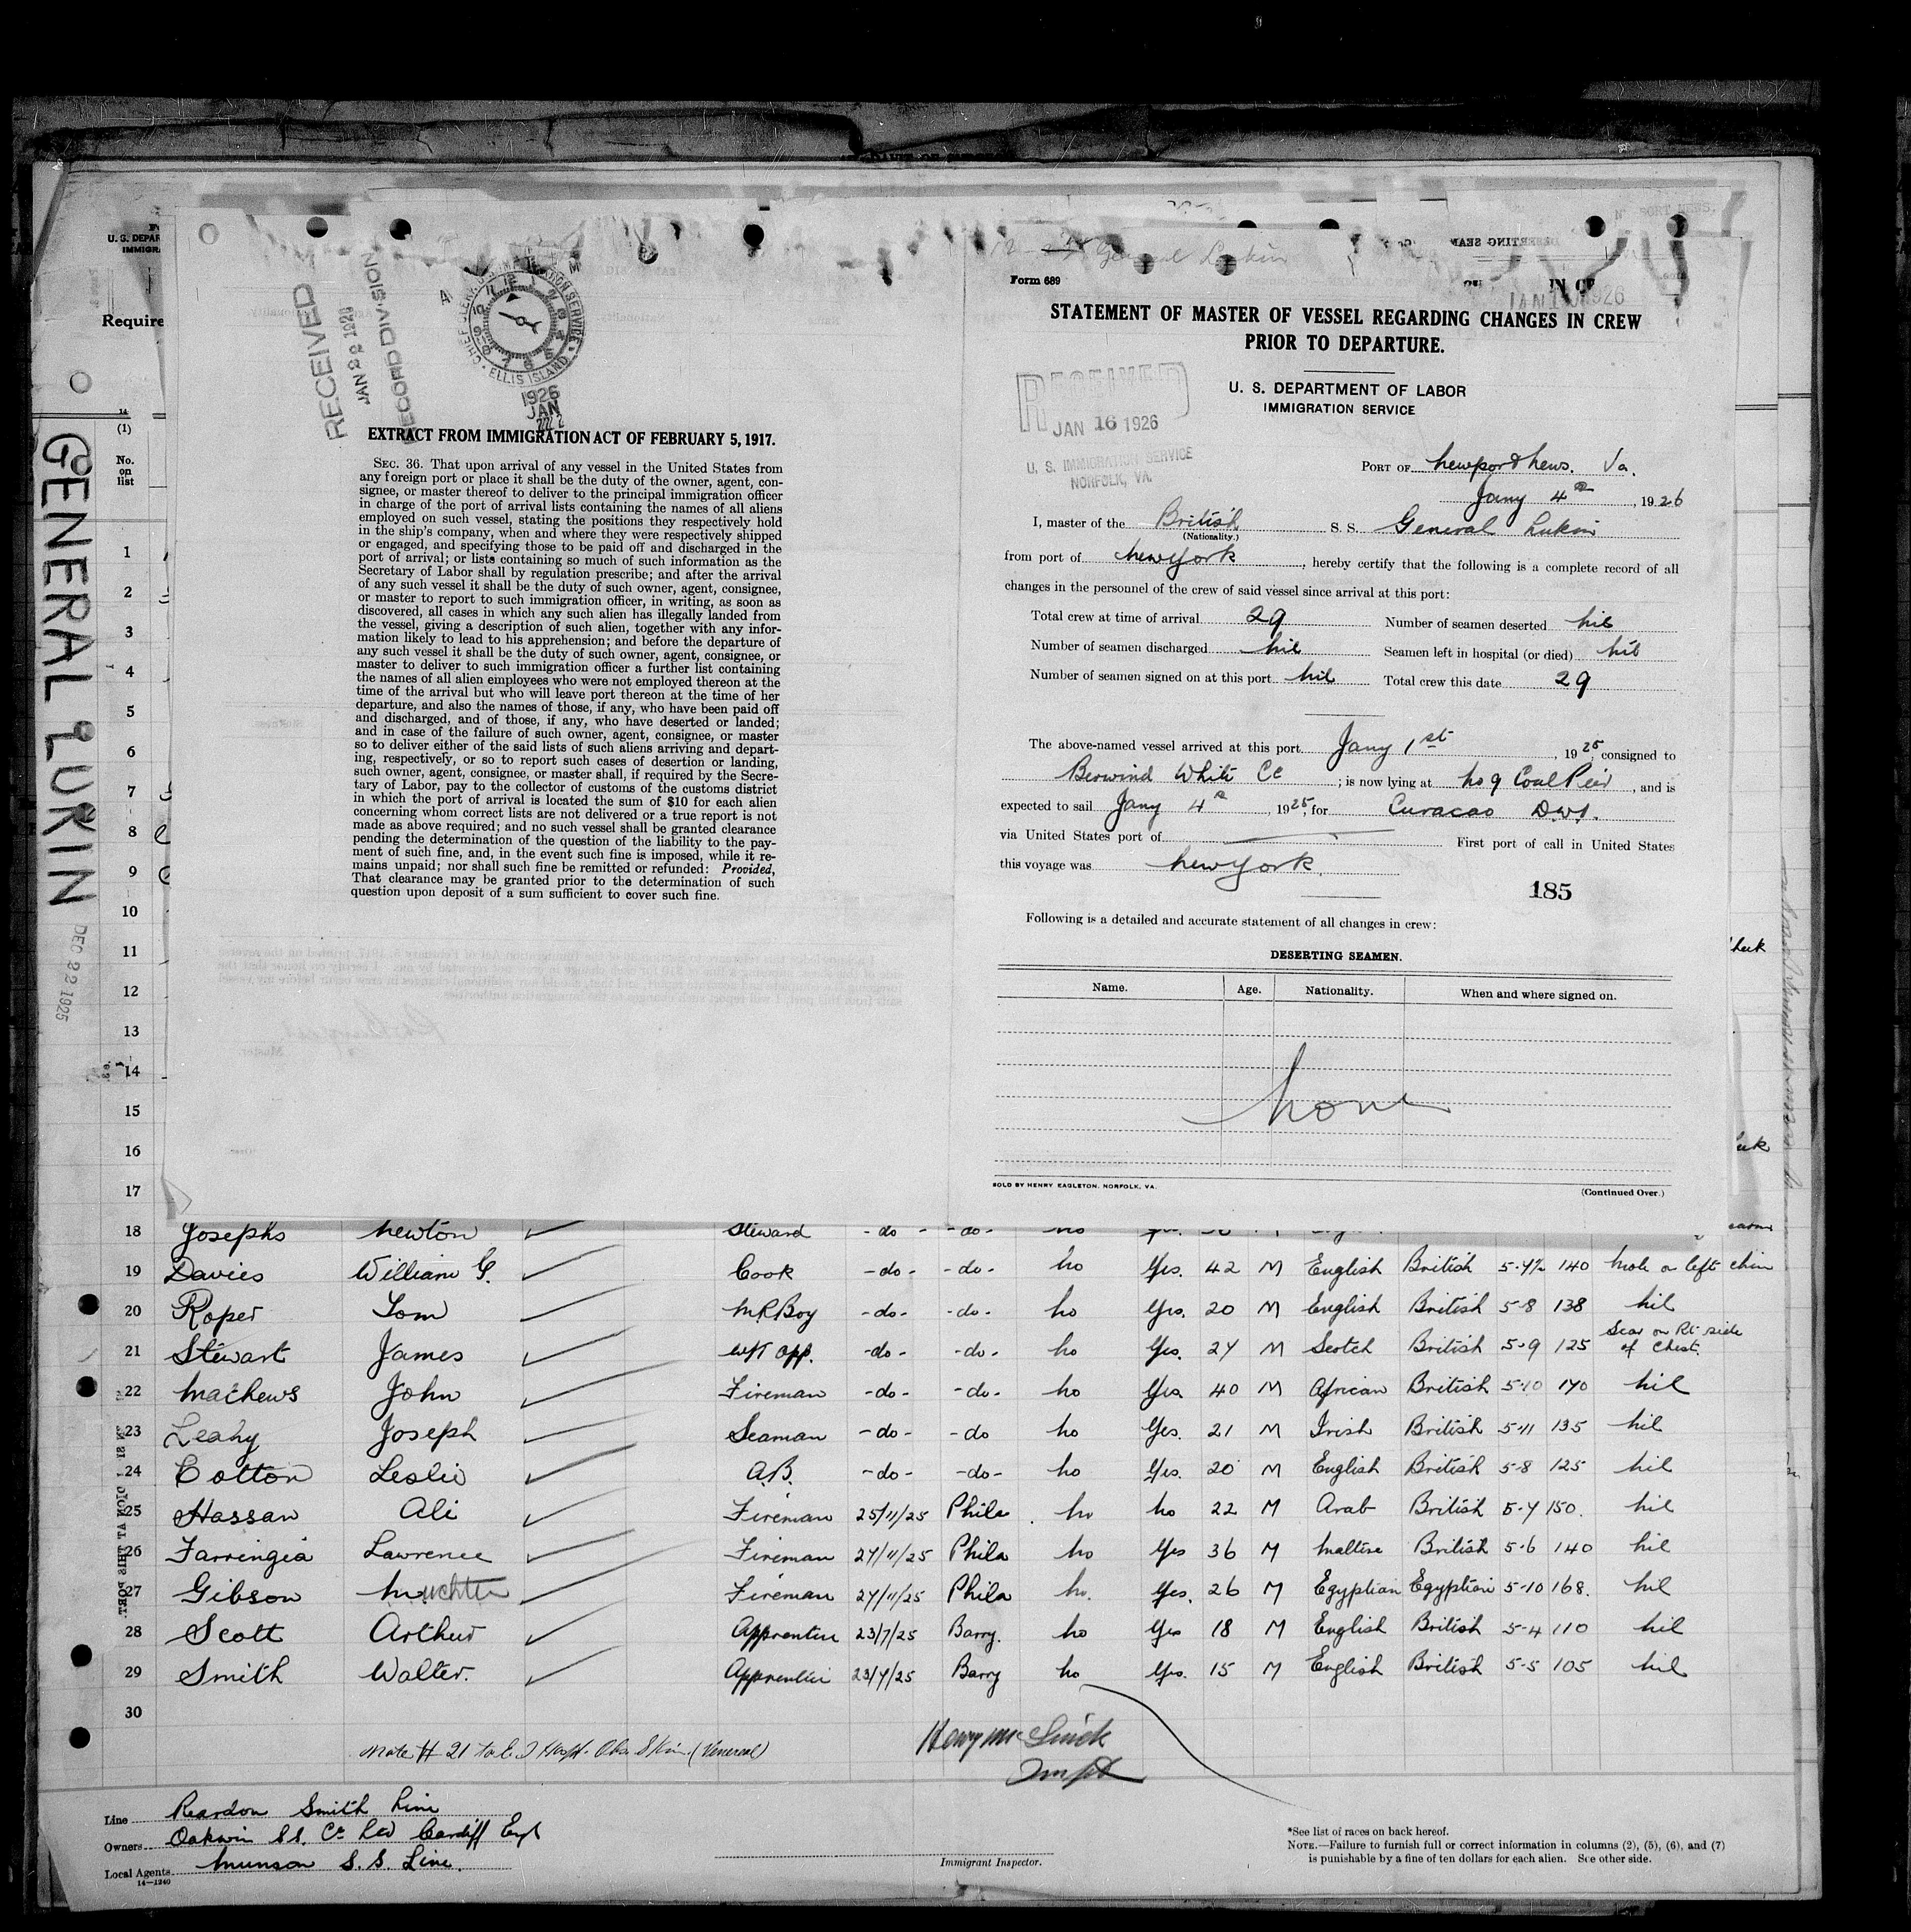 GENERAL LUKIN
DEC 22 1925
U. S. DEPAR
IMMIGRA
Require
14
(1)
No.
on
list
1
2
3
4
5
6
7
8
9
10
11
12
13
14
15
16
17
RECEIVED
JAN 22 1926
RECORD DIVISION
ELLIS ISLAND
1926
JAN
EXTRACT FROM IMMIGRATION ACT OF FEBRUARY 5, 1917.
SEC. 36. That upon arrival of any vessel in the United States from
any foreign port or place it shall be the duty of the owner, agent, con-
signee, or master thereof to deliver to the principal immigration officer
in charge of the port of arrival lists containing the names of all aliens
employed on such vessel, stating the positions they respectively hold
in the ship's company, when and where they were respectively shipped
or engaged, and specifying those to be paid off and discharged in the
port of arrival; or lists containing so much of such information as the
Secretary of Labor shall by regulation prescribe; and after the arrival
of any such vessel it shall be the duty of such owner, agent, consignee,
or master to report to such immigration officer, in writing, as soon as
discovered, all cases in which any such alien has illegally landed from
the vessel, giving a description of such alien, together with any infor-
mation likely to lead to his apprehension; and before the departure of
any such vessel it shall be the duty of such owner, agent, consignee, or
master to deliver to such immigration officer a further list containing
the names of all alien employees who were not employed thereon at the
time of the arrival but who will leave port thereon at the time of her
departure, and also the names of those, if any, who have been paid off
and discharged, and of those, if any, who have deserted or landed;
and in case of the failure of such owner, agent, consignee, or master
so to deliver either of the said lists of such aliens arriving and depart-
ing, respectively, or so to report such cases of desertion or landing,
such owner, agent, consignee, or master shall, if required by the Secre-
tary of Labor, pay to the collector of customs of the customs district
in which the port of arrival is located the sum of $10 for each alien
concerning whom correct lists are not delivered or a true report is not
made as above required; and no such vessel shall be granted clearance
pending the determination of the question of the liability to the pay-
ment of such fine, and, in the event such fine is imposed, while it re-
mains unpaid; nor shall such fine be remitted or refunded: Provided,
That clearance may be granted prior to the determination of such
question upon deposit of a sum sufficient to cover such fine.
General Lukin
Form 689
JAN 1926
STATEMENT OF MASTER OF VESSEL REGARDING CHANGES IN CREW
PRIOR TO DEPARTURE.
U. S. DEPARTMENT OF LABOR
IMMIGRATION SERVICE
RECEIVED
JAN 16 1926
U. S. IMMIGRATION SERVICE
NORFOLK, VA.
PORT OF Newport News. Va.
Jany 4th, 1926
I, master of the British S. S. General Lukin
(Nationality.)
from port of New York, hereby certify that the following is a complete record of all
changes in the personnel of the crew of said vessel since arrival at this port:
Total crew at time of arrival 29 Number of seamen deserted nil
Number of seamen discharged nil Seamen left in hospital (or died) nil
Number of seamen signed on at this port nil Total crew this date 29
The above-named vessel arrived at this port Jany 1st, 1925, consigned to
Berwind White Co; is now lying at No 9 Coal Pier, and is
expected to sail Jany 4th, 1925, for Curacao DWI.
via United States port of First port of call in United States
this voyage was New York.
185
Following is a detailed and accurate statement of all changes in crew:
DESERTING SEAMEN.
Name. Age. Nationality. When and where signed on.
None
SOLD BY HENRY EAGLETON, NORFOLK, VA. (Continued Over.)
18 Josephs Newton Steward -do- -do- no
19 Davies William G. Cook -do- -do- no Yes. 42 M English British 5-7½ 140 Mole on left chin
20 Roper Tom M.R.Boy -do- -do- no Yes. 20 M English British 5-8 138 nil
21 Stewart James W/T Opp. -do- -do- no Yes. 27 M Scotch British 5-9 125 Scar on Rt side of Chest.
22 Mathews John Fireman -do- -do- no Yes. 40 M African British 5-10 170 nil
23 Leahy Joseph Seaman -do- -do no Yes. 21 M Irish British 5-11 135 nil
24 Cotton Leslie A.B. -do- -do- no Yes. 20 M English British 5-8 125 nil
25 Hassan Ali Fireman 25/11/25 Phila. no no 22 M Arab British 5-7 150. nil
26 Farringia Lawrence Fireman 27/11/25 Phila no Yes 36 M Maltese British 5-6 140 nil
27 Gibson Fireman 27/11/25 Phila no. Yes. 26 M Egyptian Egyptian 5-10 168. nil
28 Scott Arthur Apprentice 23/7/25 Barry. no Yes 18 M English British 5-4 110 nil
29 Smith Walter. Apprentice 23/7/25 Barry no Yes. 15 M English British 5-5 105 nil
30
Note # 21 to E.I. Hosp. Obs. Skin (Venereal)
Line Reardon Smith Line
Owners Oakwin S.S. Co Ltd Cardiff Eng
Local Agents Munson S.S. Line.
14—1240
Immigrant Inspector.
*See list of races on back hereof.
NOTE.—Failure to furnish full or correct information in columns (2), (5), (6), and (7)
is punishable by a fine of ten dollars for each alien. See other side.